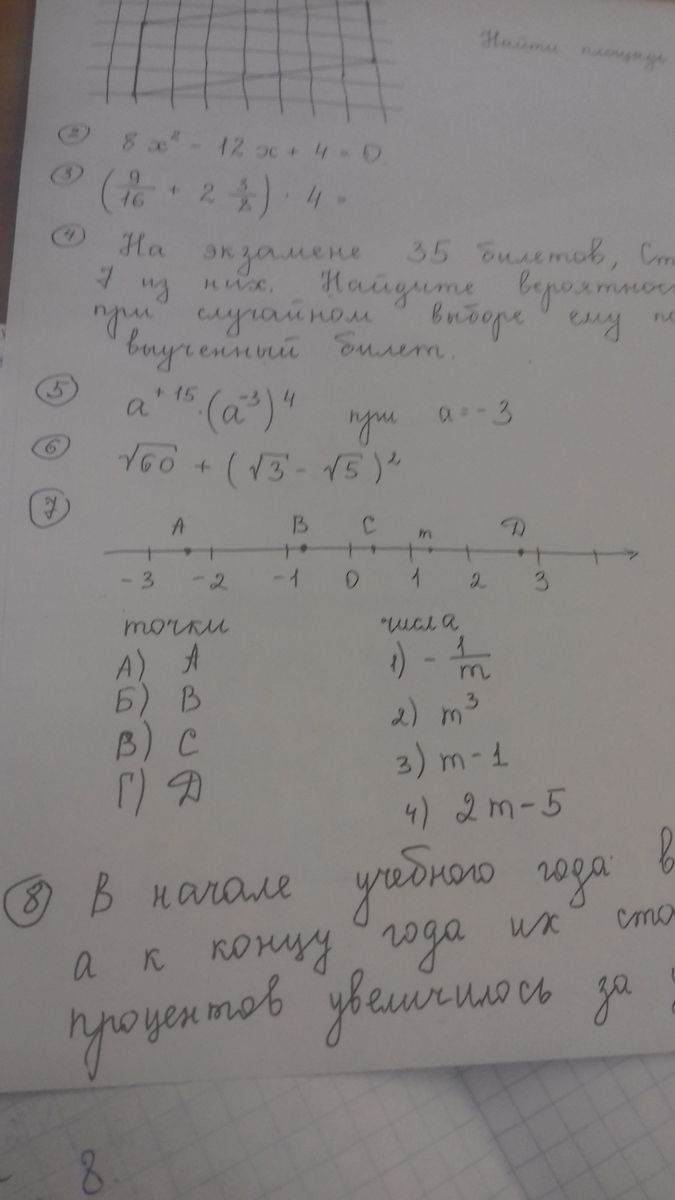 Найти площадь
② 8x² - 12x + 4 = 0
③ (9/16 + 2 3/8) · 4 =
④ На экзамене 35 билетов, Ст
7 из них. Найдите вероятнос
при случайном выборе ему п
выученный билет.
⑤ a⁺¹⁵·(a⁻³)⁴ при a = -3
⑥ √60 + (√3 - √5)²
⑦
A B C m D
-3 -2 -1 0 1 2 3
точки числа
А) A 1) - 1/m
Б) B 2) m³
В) C 3) m-1
Г) D 4) 2m-5
⑧ В начале учебного года в
а к концу года их сто
процентов увеличилось за
8.